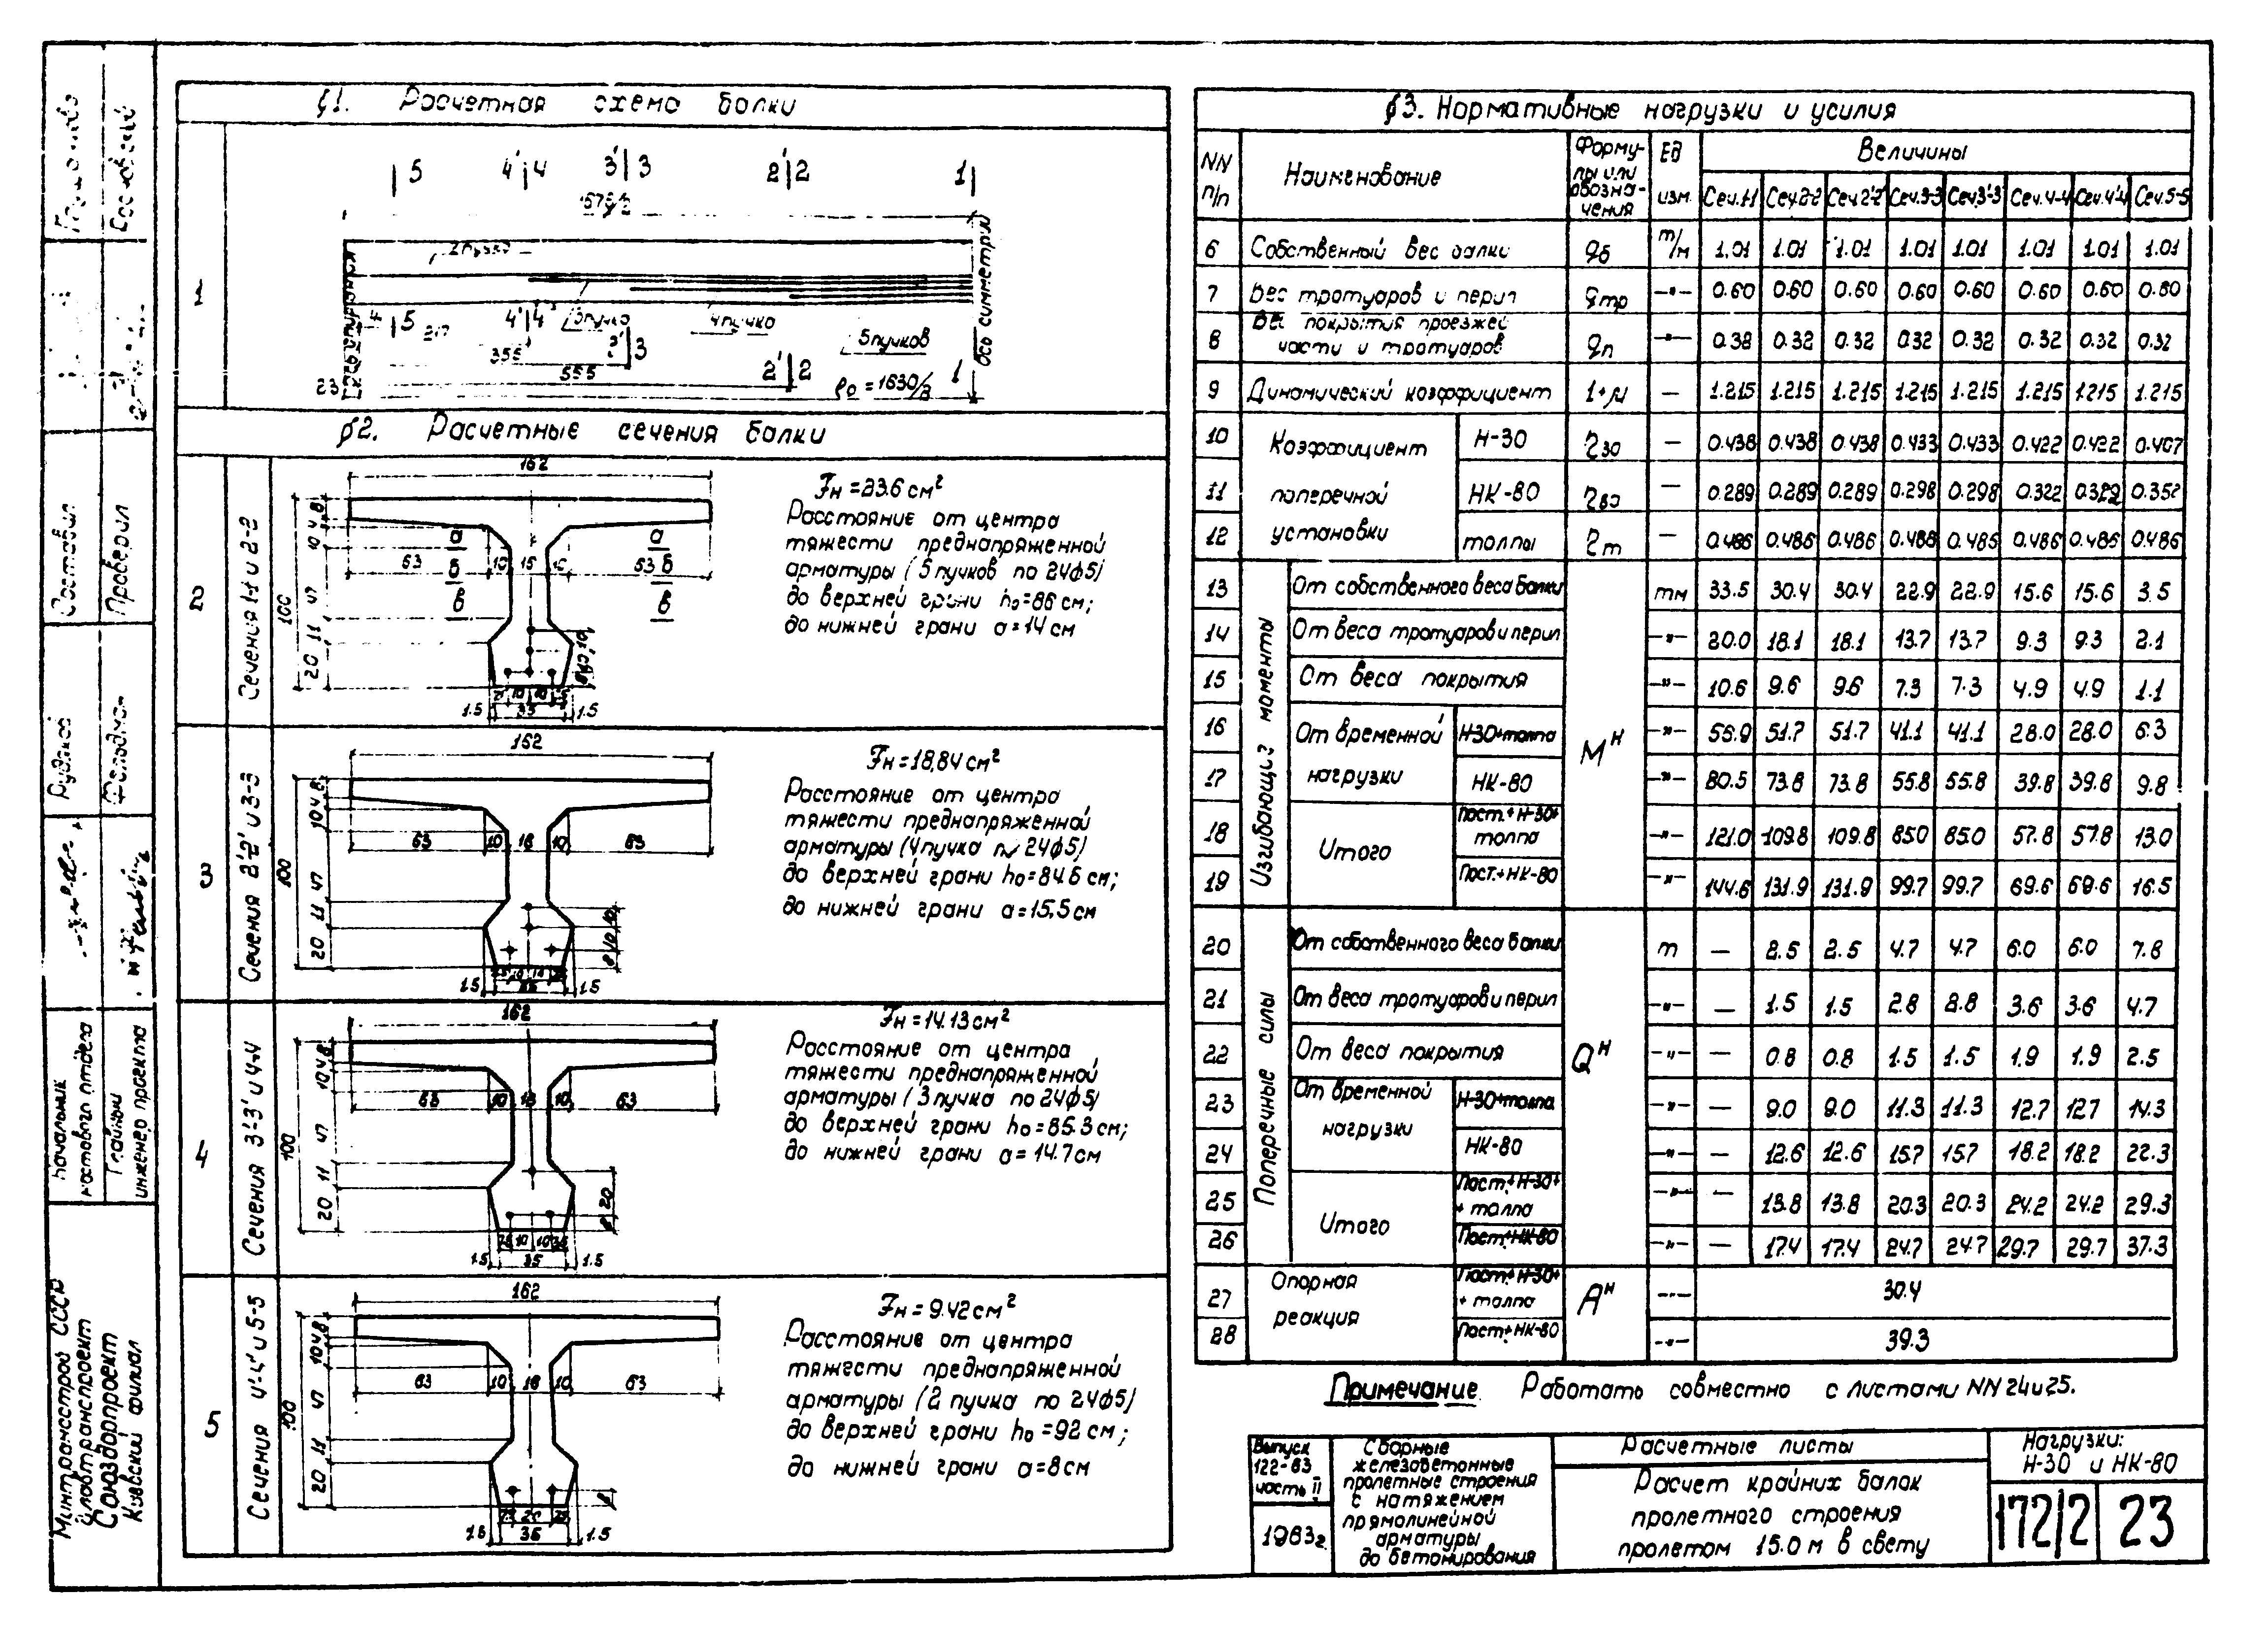 §1. Расчетная схема балки
5 4' 4 3' 3 2' 2 1
1
2 пучка
ось симметрии
5 4' 4 3 пучка 4 пучка 5 пучков
217
355 3' 3
555
2' 2 1
23 ℓ₀ = 1630/2
§2. Расчетные сечения балки
2
Сечения 1-1 и 2-2
162
Fн = 23.6 см²
Расстояние от центра
тяжести преднапряженной
арматуры (5 пучков по 24ф5)
до верхней грани h₀=86 см;
до нижней грани а=14 см
а а
63 10 16 10 63
б б
в в
100 8 4 10 47 11 20
1.5 35 1.5
3
Сечения 2'-2' и 3-3
162
Fн = 18,84 см²
Расстояние от центра
тяжести преднапряженной
арматуры (4 пучка по 24ф5)
до верхней грани h₀=84.6 см;
до нижней грани а=15,5 см
63 10 16 10 63
100 8 4 10 47 11 20
1.5 35 1.5
4
Сечения 3'-3' и 4-4
162
Fн = 14.13 см²
Расстояние от центра
тяжести преднапряженной
арматуры (3 пучка по 24ф5)
до верхней грани h₀=85.3 см;
до нижней грани а=14.7 см
63 10 16 10 63
100 8 4 10 47 11 20
8 20
1.5 35 1.5
5
Сечения 4'-4' и 5-5
162
Fн = 9.42 см²
Расстояние от центра
тяжести преднапряженной
арматуры (2 пучка по 24ф5)
до верхней грани h₀=92 см;
до нижней грани а=8 см
63 10 16 10 63
100 8 4 10 47 11 20
8
1.5 35 1.5
§3. Нормативные нагрузки и усилия
NN п/п Наименование Формулы или обозначения Ед изм. Величины
Сеч.1-1 Сеч.2-2 Сеч.2'-2' Сеч.3-3 Сеч.3'-3' Сеч.4-4 Сеч.4'-4' Сеч.5-5
6 Собственный вес балки qб т/м 1.01 1.01 1.01 1.01 1.01 1.01 1.01 1.01
7 Вес тротуаров и перил qтр -"- 0.60 0.60 0.60 0.60 0.60 0.60 0.60 0.60
8 Вес покрытия проезжей части и тротуаров qп -"- 0.38 0.32 0.32 0.32 0.32 0.32 0.32 0.32
9 Динамический коэффициент 1+μ — 1.215 1.215 1.215 1.215 1.215 1.215 1.215 1.215
Коэффициент поперечной установки
10 Н-30 η30 — 0.438 0.438 0.438 0.433 0.433 0.422 0.422 0.407
11 НК-80 η80 — 0.289 0.289 0.289 0.298 0.298 0.322 0.322 0.352
12 толпы ηт — 0.486 0.486 0.486 0.486 0.486 0.486 0.486 0.486
Изгибающие моменты Мᴴ
13 От собственного веса балки тм 33.5 30.4 30.4 22.9 22.9 15.6 15.6 3.5
14 От веса тротуаров и перил -"- 20.0 18.1 18.1 13.7 13.7 9.3 9.3 2.1
15 От веса покрытия -"- 10.6 9.6 9.6 7.3 7.3 4.9 4.9 1.1
От временной нагрузки
16 Н-30+толпа -"- 56.9 51.7 51.7 41.1 41.1 28.0 28.0 6.3
17 НК-80 -"- 80.5 73.8 73.8 55.8 55.8 39.8 39.8 9.8
Итого
18 Пост.+Н-30+толпа -"- 121.0 109.8 109.8 85.0 85.0 57.8 57.8 13.0
19 Пост.+НК-80 -"- 144.6 131.9 131.9 99.7 99.7 69.6 69.6 16.5
Поперечные силы Qᴴ
20 От собственного веса балки т — 2.5 2.5 4.7 4.7 6.0 6.0 7.8
21 От веса тротуаров и перил -"- — 1.5 1.5 2.8 2.8 3.6 3.6 4.7
22 От веса покрытия -"- — 0.8 0.8 1.5 1.5 1.9 1.9 2.5
От временной нагрузки
23 Н-30+толпа -"- — 9.0 9.0 11.3 11.3 12.7 12.7 14.3
24 НК-80 -"- — 12.6 12.6 15.7 15.7 18.2 18.2 22.3
Итого
25 Пост.+Н-30+ + толпа -"- — 13.8 13.8 20.3 20.3 24.2 24.2 29.3
26 Пост.+НК-80 -"- — 17.4 17.4 24.7 24.7 29.7 29.7 37.3
Опорная реакция Аᴴ
27 Пост.+Н-30+ + толпа -"- 30.4
28 Пост.+НК-80 -"- 39.3
Примечание. Работать совместно с листами NN 24 и 25.
Выпуск
122-63
часть II
1963г.
Сборные
железобетонные
пролетные строения
с натяжением
прямолинейной
арматуры
до бетонирования
Расчетные листы
Расчет крайних балок
пролетного строения
пролетом 15.0 м в свету
Нагрузки:
Н-30 и НК-80
172/2 23
Составил
Проверил
Рудяков
Фельдман
Начальник
мостового отдела
Главный
инженер проекта
Минтрансстрой СССР
Главтранспроект
Союздорпроект
Киевский филиал